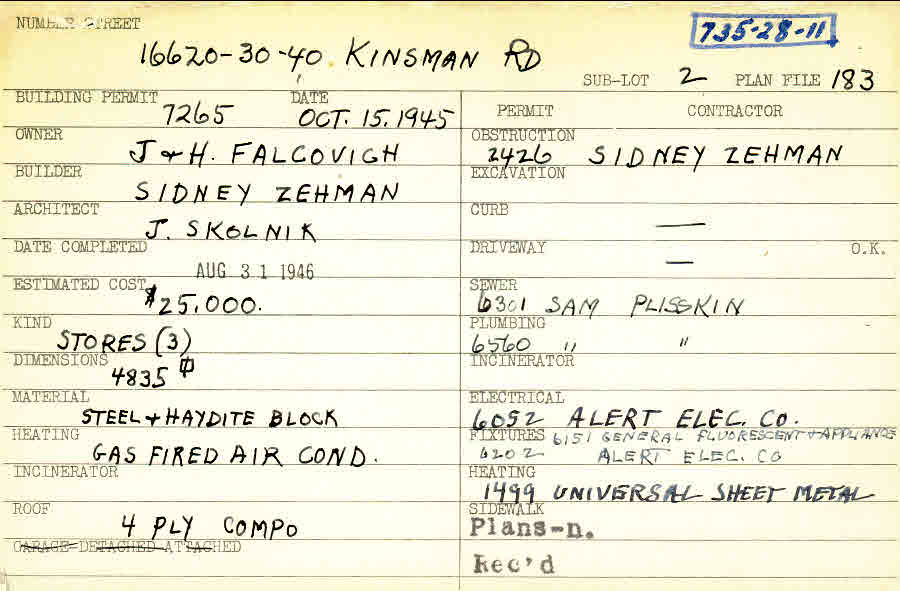 NUMBER STREET
735-28-11
16620-30-40 KINSMAN RD
SUB-LOT 2 PLAN FILE 183
BUILDING PERMIT DATE
7265 OCT. 15. 1945
OWNER
J + H. FALCOVICH
BUILDER
SIDNEY ZEHMAN
ARCHITECT
J. SKOLNIK
DATE COMPLETED
AUG 31 1946
ESTIMATED COST
$25,000.
KIND
STORES (3)
DIMENSIONS
4835
MATERIAL
STEEL + HAYDITE BLOCK
HEATING
GAS FIRED AIR COND.
INCINERATOR
ROOF
4 PLY COMPO
GARAGE-DETACHED-ATTACHED
PERMIT CONTRACTOR
OBSTRUCTION
2426 SIDNEY ZEHMAN
EXCAVATION
CURB
—
DRIVEWAY O.K.
—
SEWER
6301 SAM PLISSKIN
PLUMBING
6560 " "
INCINERATOR
ELECTRICAL
6052 ALERT ELEC. CO.
FIXTURES 6151 GENERAL FLUORESCENT + APPLIANCE
6202 ALERT ELEC. CO
HEATING
1499 UNIVERSAL SHEET METAL
SIDEWALK
Plans-n.
Rec'd